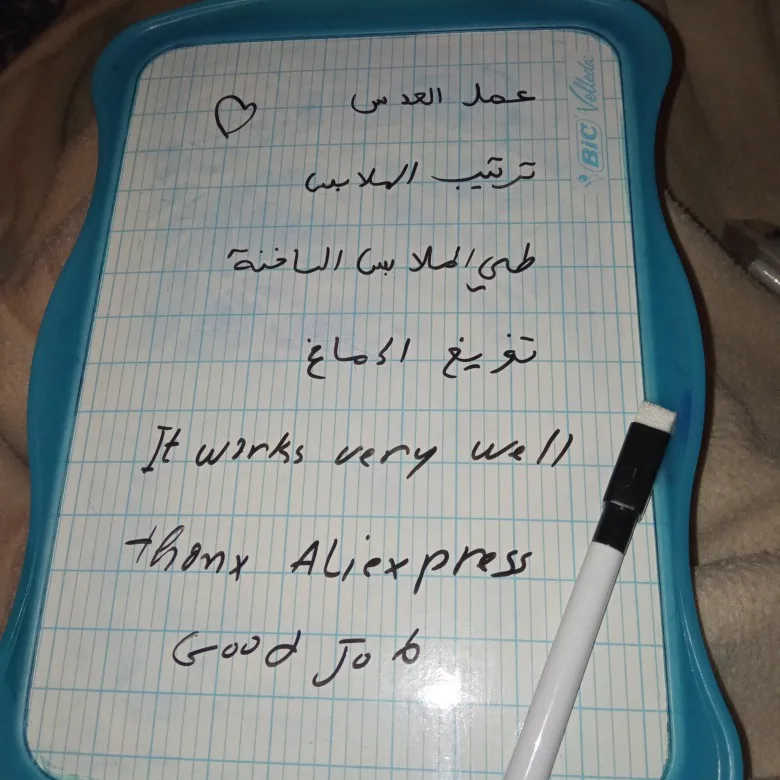 عمل العدس
ترتيب الملابس
طي الملابس الساخنة
تفريغ الدماغ
It works very well
thanx Aliexpress
Good Job
BIC Velleda